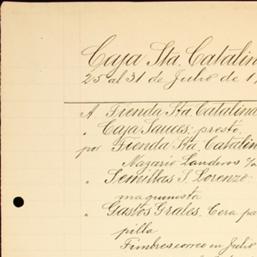 Caja Sta. Catalina
25 al 31 de Julio de 1
A Tienda Sta. Catalina
" Caja Sauces, presto.
por Tienda Sta. Catalin
Nazario Landeros
" Semillas S. Lorenzo
maquinista
" Gastos Grales. Cera pa
pilla
Timbres correo en Julio